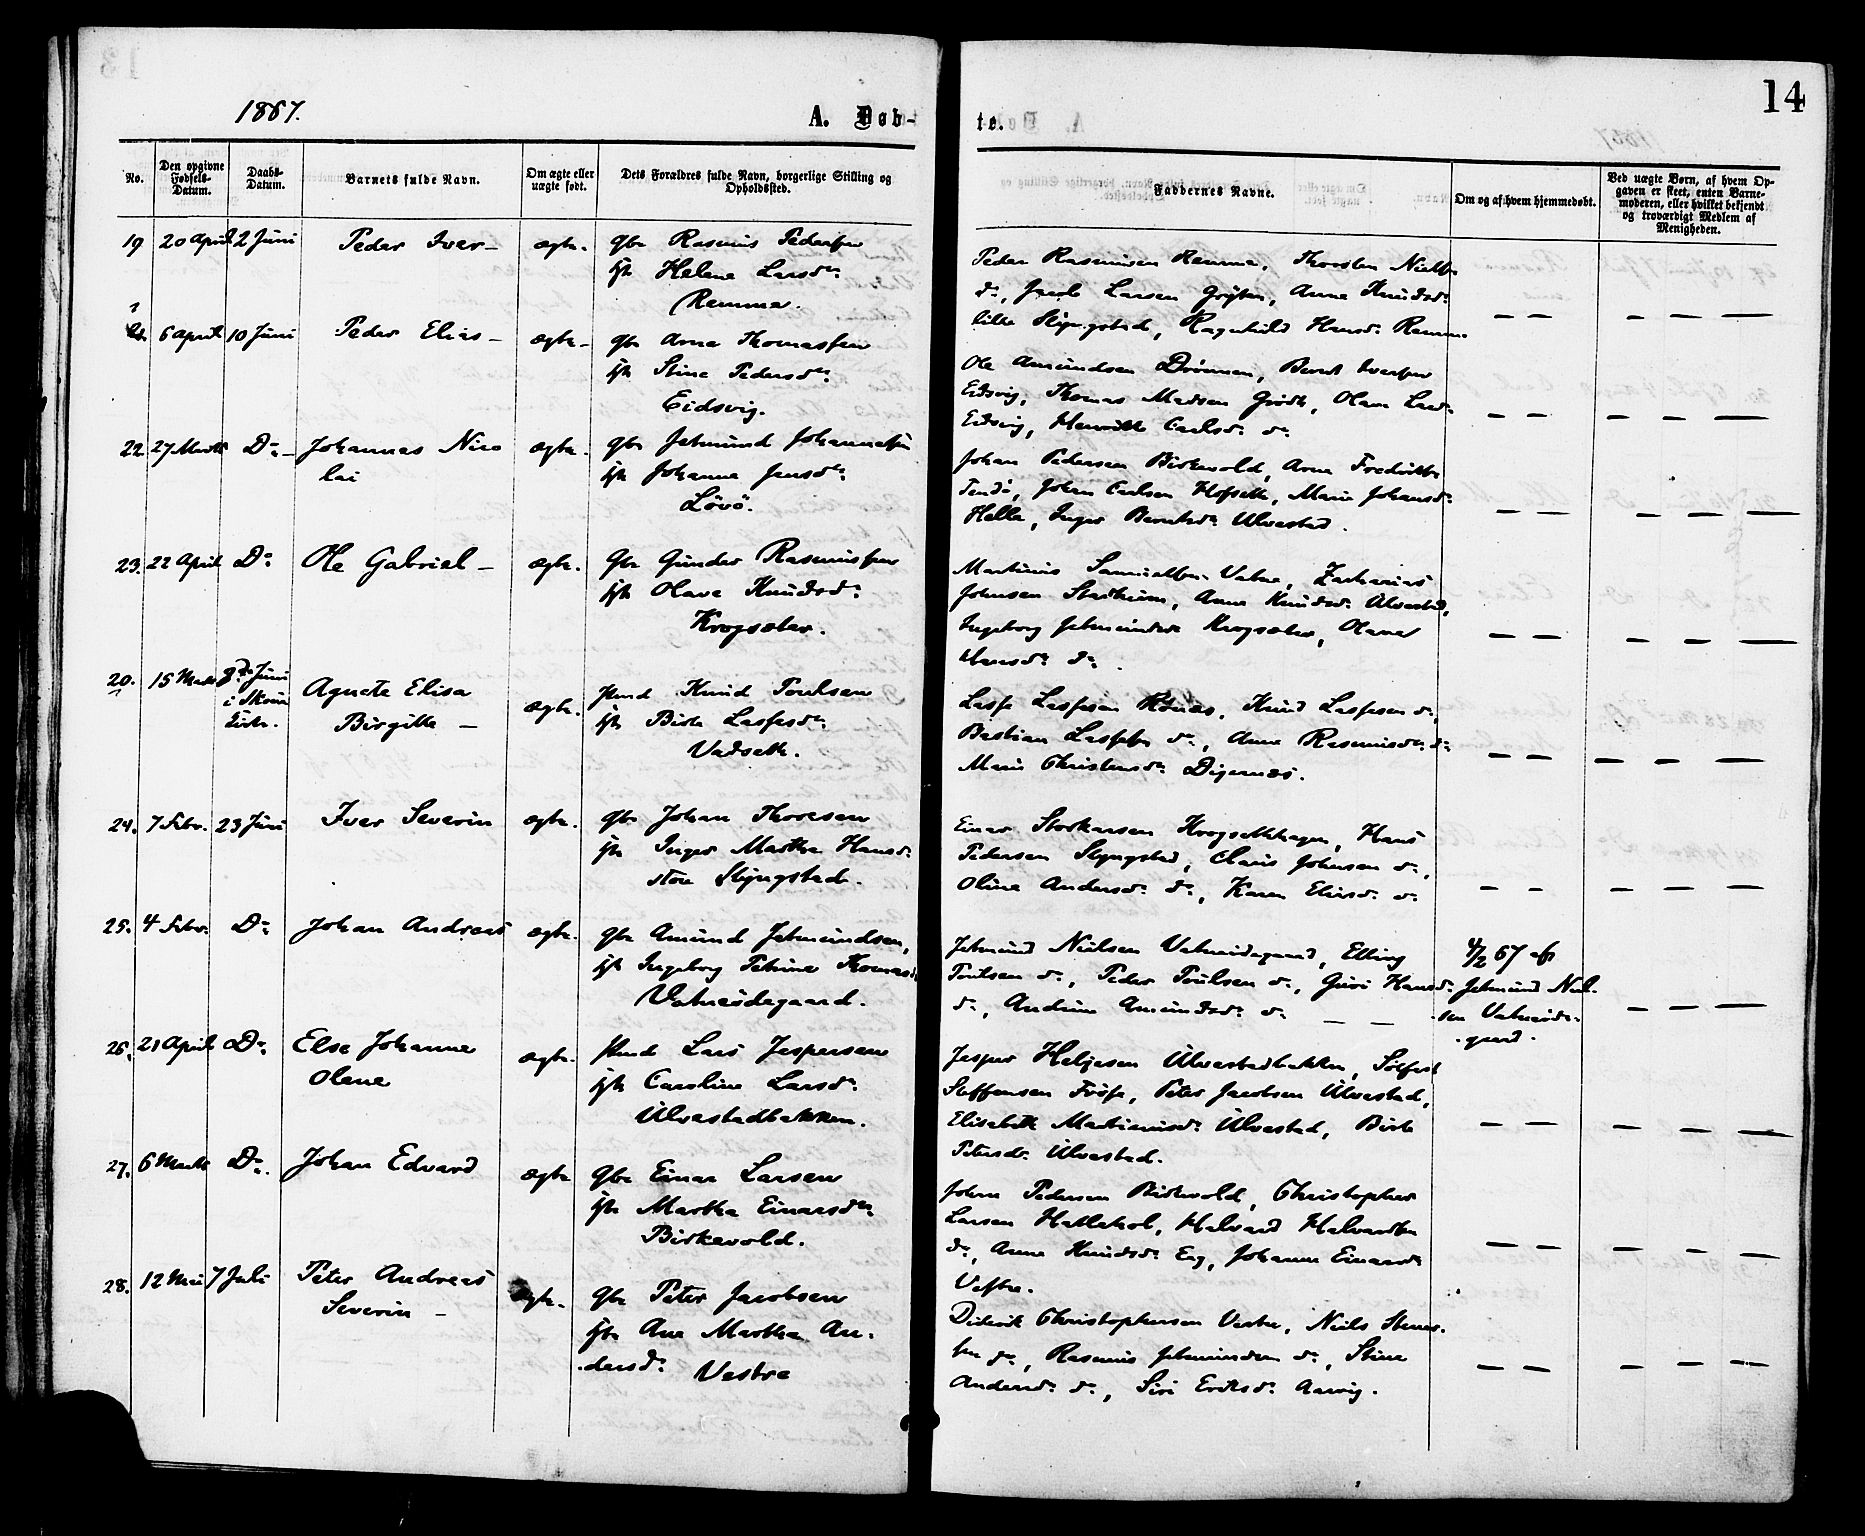 1867.
A. Døb-
te.
14
No.
Den opgivne
Fødsels-
Datum.
Daabs-
Datum.
Barnets fulde Navn.
Om ægte eller
uægte født.
Dets Forældres fulde Navn, borgerlige Stilling og
Opholdssted.
Faddernes Navne.
Om og af hvem hjemmedøbt.
Ved uægte Børn, af hvem Op-
gaven er skeet, enten Barne-
moderen, eller hvilket bekjendt
og troværdigt Medlem af
Menigheden.
19 20 April 2 Juni Peder Iver – ægte. Gbr Rasmus Pedersen
Helene Larsdr.
Remme.
Peder Rasmusen Remme, Thorsten Niels
dr., Jacob Larsen Gryten, Anne Knudsdr.
lille Slyngstad, Ragnhild Hansdr. Remme.
6 April 10 Juni Peder Elias – ægte – Gbr Arne Thomassen
Stine Pedersdr.
Eidsvig.
Ole Amundsen Drønnen, Bernt Iversen
Eidsvig, Thomas Madsen Giødt, Olave Lasd.
Eidsvig, Henrikke Carlsdr. do.
22 27 Marts Do – Johannes Nico ægte. Gbr Jetmund Johannesen
lai Johanne Jensdr.
Løvø.
Johan Pedersen Birkevold, Arne Fredriks
Johan Carlsen Hofseth, Marie Johansdr.
Helle, Inger Berntsdr. Ulvestad.
23. 22 April Do Ole Gabriel – ægte. Gbr Gunder Rasmussen
Olave Knudsdr.
Krogsæter.
Martinus Samuelsen Vatne, Zacharias
Johnsen Stadheim, Anne Knudsdr. Ulvestad,
Ingeborg Jetmundsdr Krogsæter, Olave
Hansdr. do.
20. 15 Marts Juni Agnete Elisa ægte. Knud Poulsen
i Birgitte – Birte Lassesdr.
Kirke. Vadseth.
Lasse Lassesen Rønæs, Knud Lassesen do,
Bastian Lassesen do., Anne Rasmusdr. do
Marie Christensdr. Digernæs.
24. 7 Febr. 23 Juni Iver Severin ægte. Gbr Johan Thoresen
Inger Martha Hansdr.
store Slyngstad.
Einar Storkarsen Krogsethhagen, Hans
Pedersen Slyngstad, Claus Johnsen do.,
Oline Andersdr. do., Karen Eliasd. do.
25. 4 Febr. Do Johan Andreas ægte. Gbr Amund Jetmundsen,
Ingeborg Petrine Thomasd.
Vatneødegaard.
Jetmund Nielsen Vatneødegaard, Elling
Poulsen do., Peder Poulsen do., Guri Hansd.
do., Andrine Amundsdr. do.
4/2 67 af
Jetmund Niel-
sen Vatneøde-
gaard.
26. 21 April Do. Else Johanne ægte. Lars Jespersen
Olene Caroline Larsdr.
Ulvestadbakken.
Jesper Helgesen Ulvestadbakken, Sølfest
Steffensen Fosse, Peter Jacobsen Ulvestad,
Elisabeth Martinusdr. Ulvestad, Birte
Petersdr. Ulvestad.
27. 6 Marts Do. Johan Edvard ægte Gbr Einar Larsen
Martha Einarsdr.
Birkevold.
Johan Pedersen Birkevold, Christopher
Larsen Hatlehol, Halvard Halvardsen
do., Anne Knudsdr. Eeg, Johanne Einarsdr
Vestre.
28. 12 Mai 7 Juli Peter Andreas ægte. Gbr Peter Jacobsen
Severin – Ane Martha An-
dersdr. Vestre
Diderik Christophersen Vestre, Niels
do., Rasmus Jetmundsen do., Stine
Andersd. do., Siri Eriksdr. Aarvig.